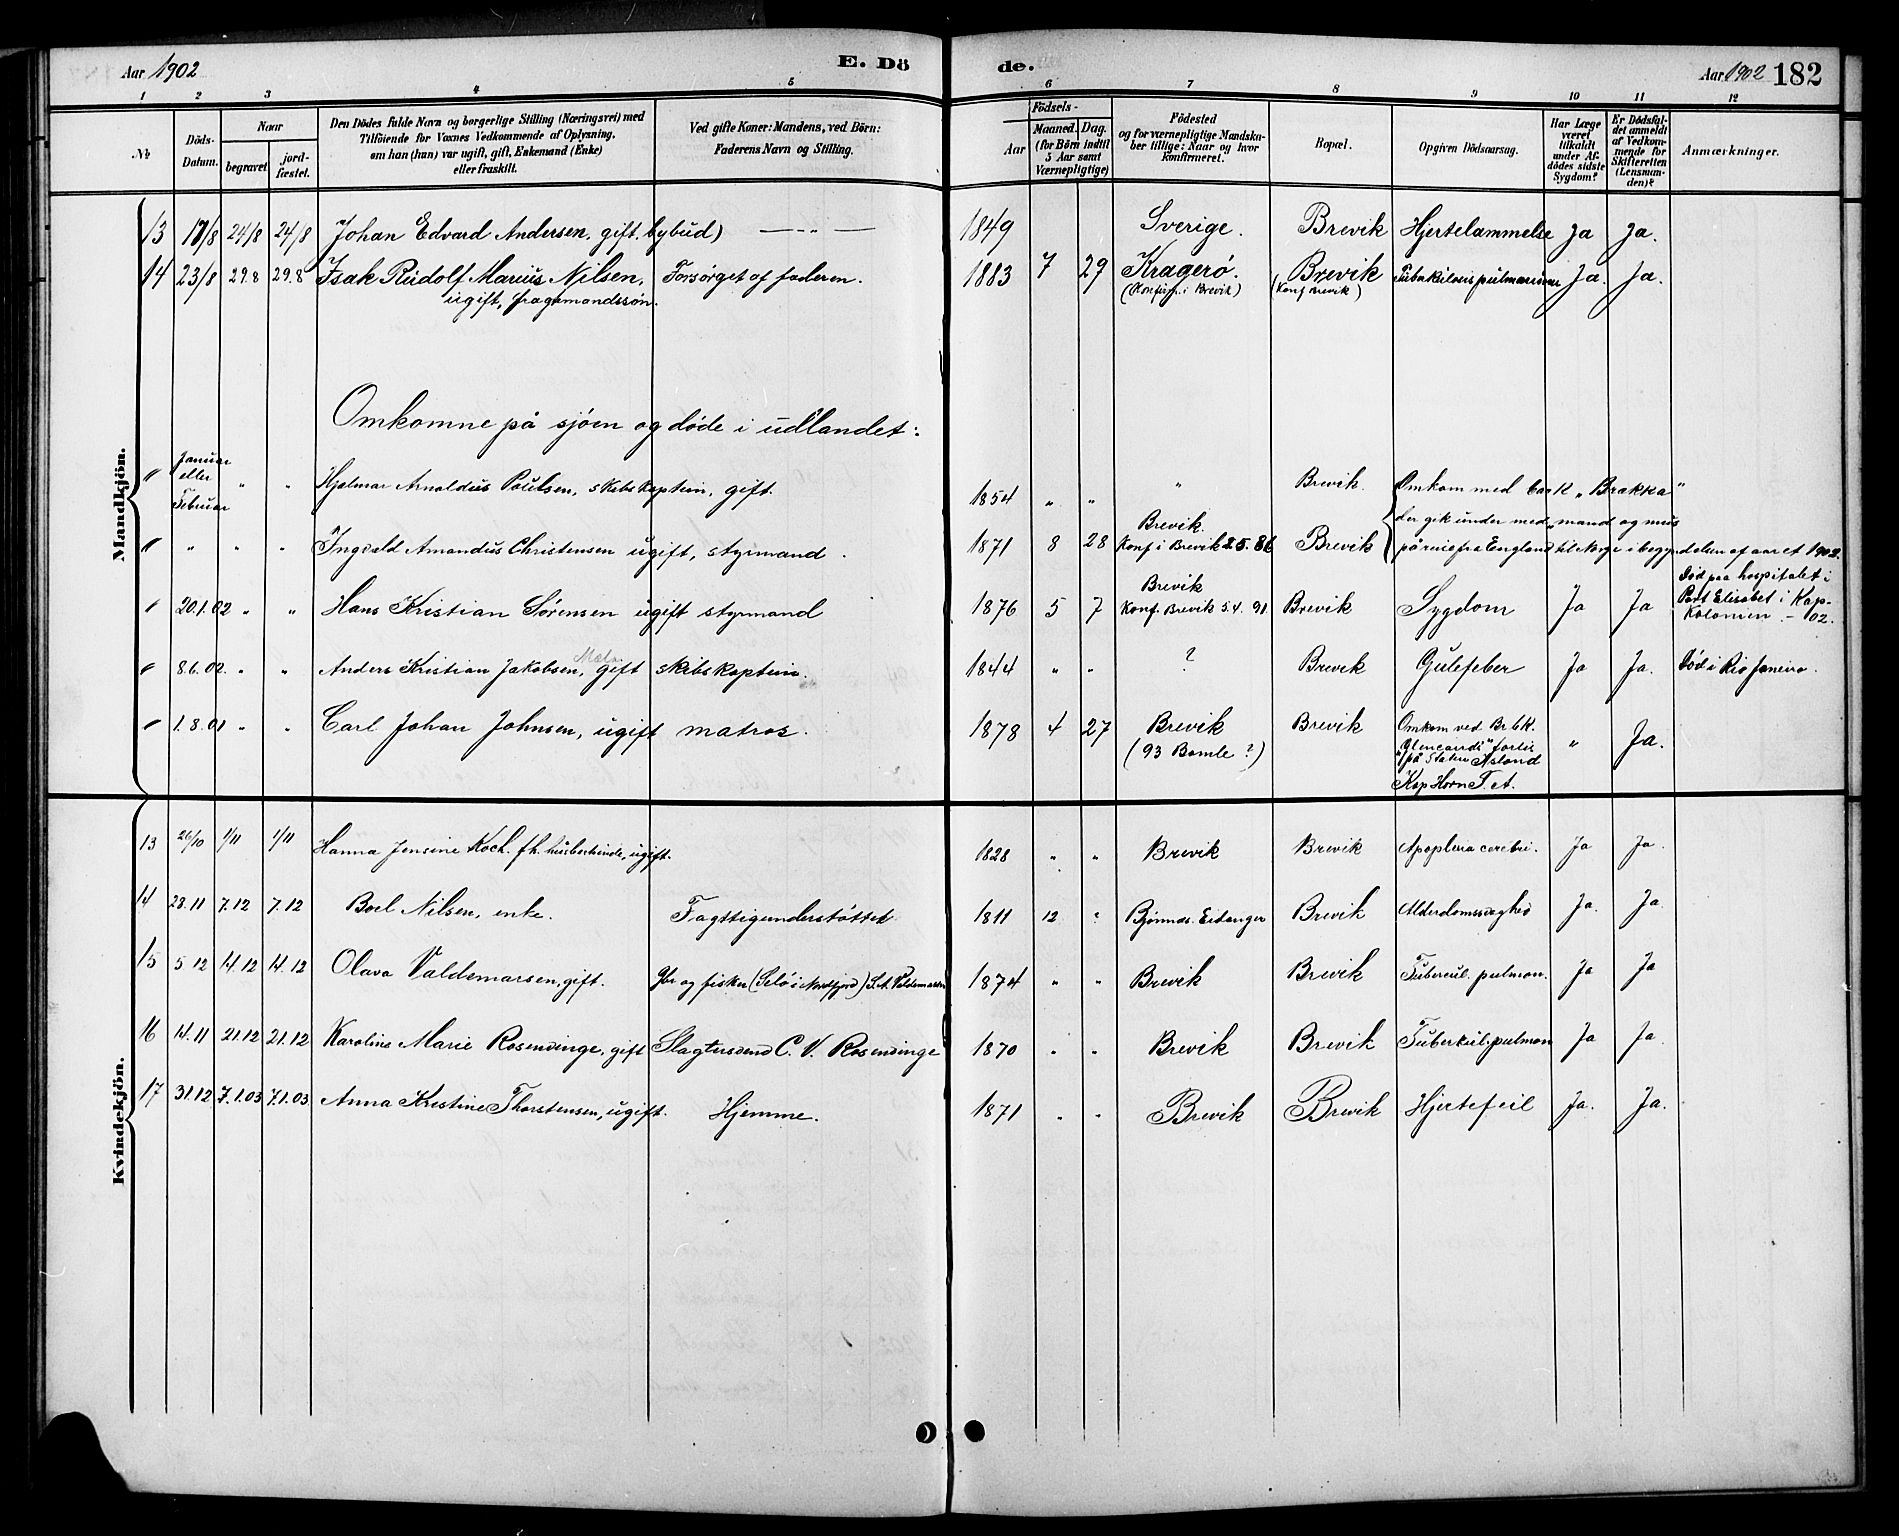 Aar 1902 E. Dö de. Aar 1902 182
1 2 3 4 5 6 7 8 9 10 11 12
№ Döds-Datum. Naar begravet jord-fæstet. Den Dödes fulde Navn og borgerlige Stilling (Næringsvei) med Tilföiende for Voxnes Vedkommende af Oplysning, om han (hun) var ugift, gift, Enkemand (Enke) eller fraskilt. Ved gifte Koner: Mandens, ved Börn: Faderens Navn og Stilling. Födsels- Aar Maaned. Dag. (for Börn indtil 5 Aar samt Værnepligtige) Födested og for værnepligtige Mandskaber tillige: Naar og hvor konfirmeret. Bopæl. Opgiven Dödsaarsag. Har Læge været tilkaldt under Afdödes sidste Sygdom? Er Dödsfaldet anmeldt af Vedkommende for Skifteretten (Lensmanden)? Anmærkninger.
Mandkjön.
13 17/8 24/8 24/8 Johan Edvard Andersen, gift. bybud) — „ — 1849 Sverige. Brevik Hjertelammelse Ja Ja.
14 23/8 29.8 29.8 Isak Rudolf Marius Nilsen, Forsørget af faderen. 1883 7 29 Kragerø. Brevik Ja. Ja.
ugift, (Konf. i Brevik)
Omkomne på sjøen og døde i udlandet:
" Januar eller Februar " " Hjalmar Arnoldus Paulsen, skibskaptein, gift. 1854 " " " Brevik. Omkom med bark „Brakka"
der gik under med mand og mus
" " " " Ingvald Amandus Christensen ugift, styrmand. 1871 8 28 Brevik. Konf i Brevik 2.5.86 Brevik på reise fra England til Norge i begyndelsen af aaret 1902.
" 20.1.02 " " Hans Kristian Sørensen ugift styrmand 1876 5 7 Brevik Konf. Brevik 5.4.91 Brevik Sygdom Ja Ja Død paa hospitalet i Port Elisabet i Kap-Kolonien - 02.
" 8.6.02. " " Anders Kristian Jakobsen, gift skibskaptein. 1844 " " ? Brevik Gulefeber Ja Ja. Død i Rio Janeiro.
" 1.8.01 " " Carl Johan Johnsen, ugift matros. 1878 4 27 Brevik Brevik Omkom ved " Ja.
(93 Bamle?) forlis
på Staten Island
Kap Horn
Kvindekjön.
13 26/10 1/11 1/11 Hanna Jensine Koch. fh. husbestyrinde, ugift. 1828 " " Brevik Brevik Apoplexia cerebri. Ja Ja.
14 28.11 7.12 7.12 Boel Nilsen, enke. Fattigunderstøttet 1811 12 ? Bjønnes. Eidanger Brevik Alderdomssvaghed Ja. Ja.
15 5.12 14.12 14.12 Olava Valdemarsen, gift. Gbr og fisker (Selø i Nordfjord) S. A. Valdemarsen 1874 " " Brevik Brevik Tubercul. pulmon. Ja Ja
16 14.11 21.12 21.12 Karoline Marie Rosenvinge, gift Slagtersvend C. V. Rosenvinge 1870 " " Brevik Brevik Tuberkul. pulmon Ja Ja.
17 31.12 7.1.03 7.1.03 Anna Kristine Thorstensen, ugift. Hjemme. 1871 " " Brevik Brevik Hjertefeil Ja. Ja.